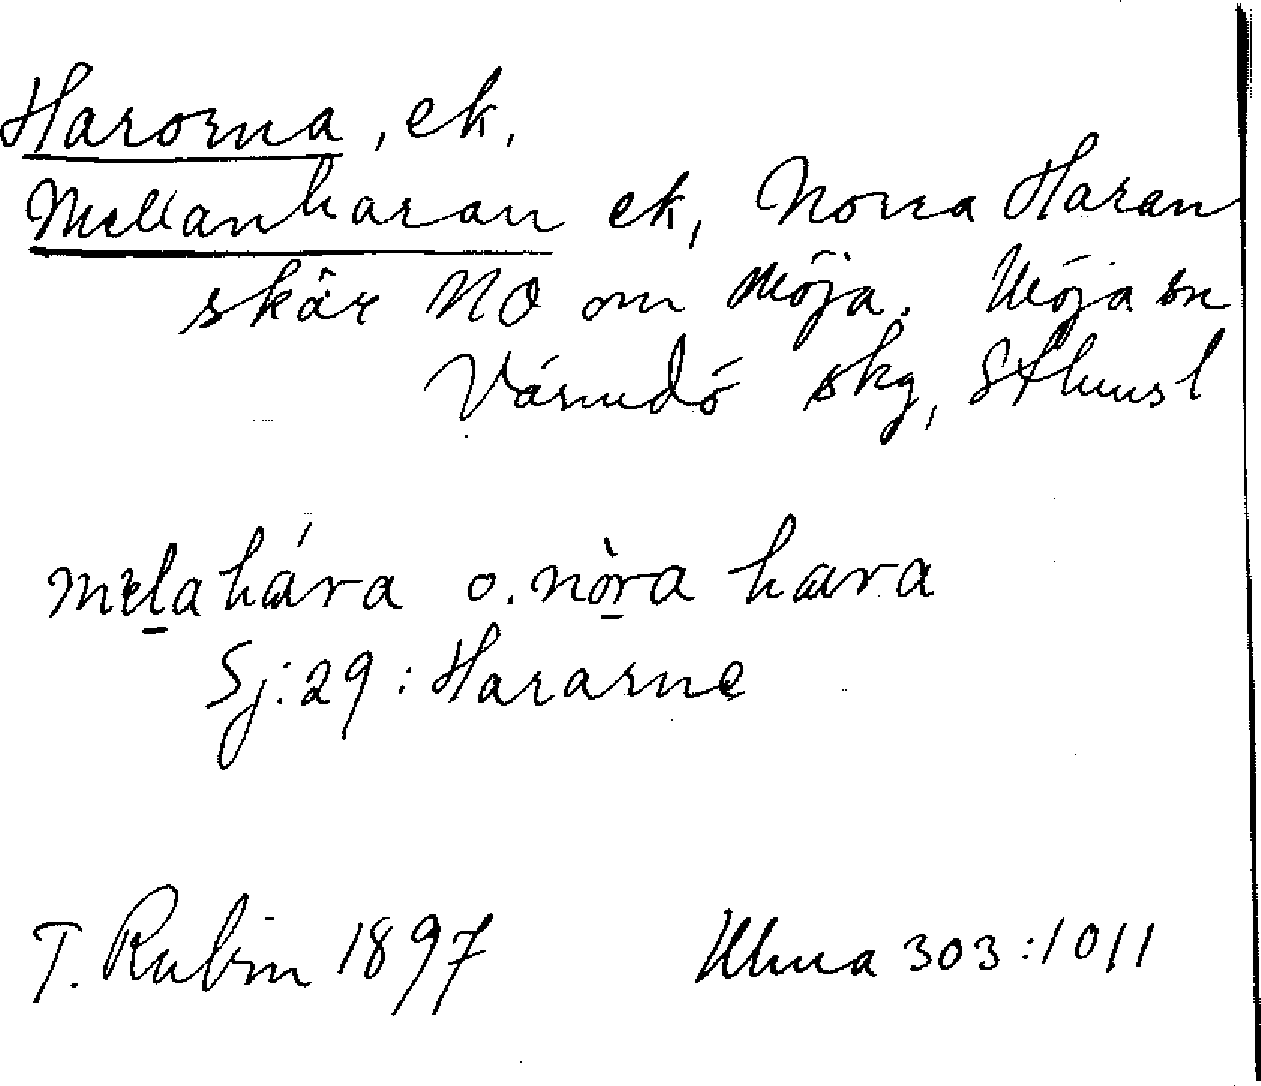 Harorna, ek.
Mellanharan ek, Norra Haran
skär NO om Möja. Möja sn
Värmdö skg, Sthmsl
melahára o. nòra hara
Sj: 29: Hararne
T. Rubin 1897 Uhma 303:1011